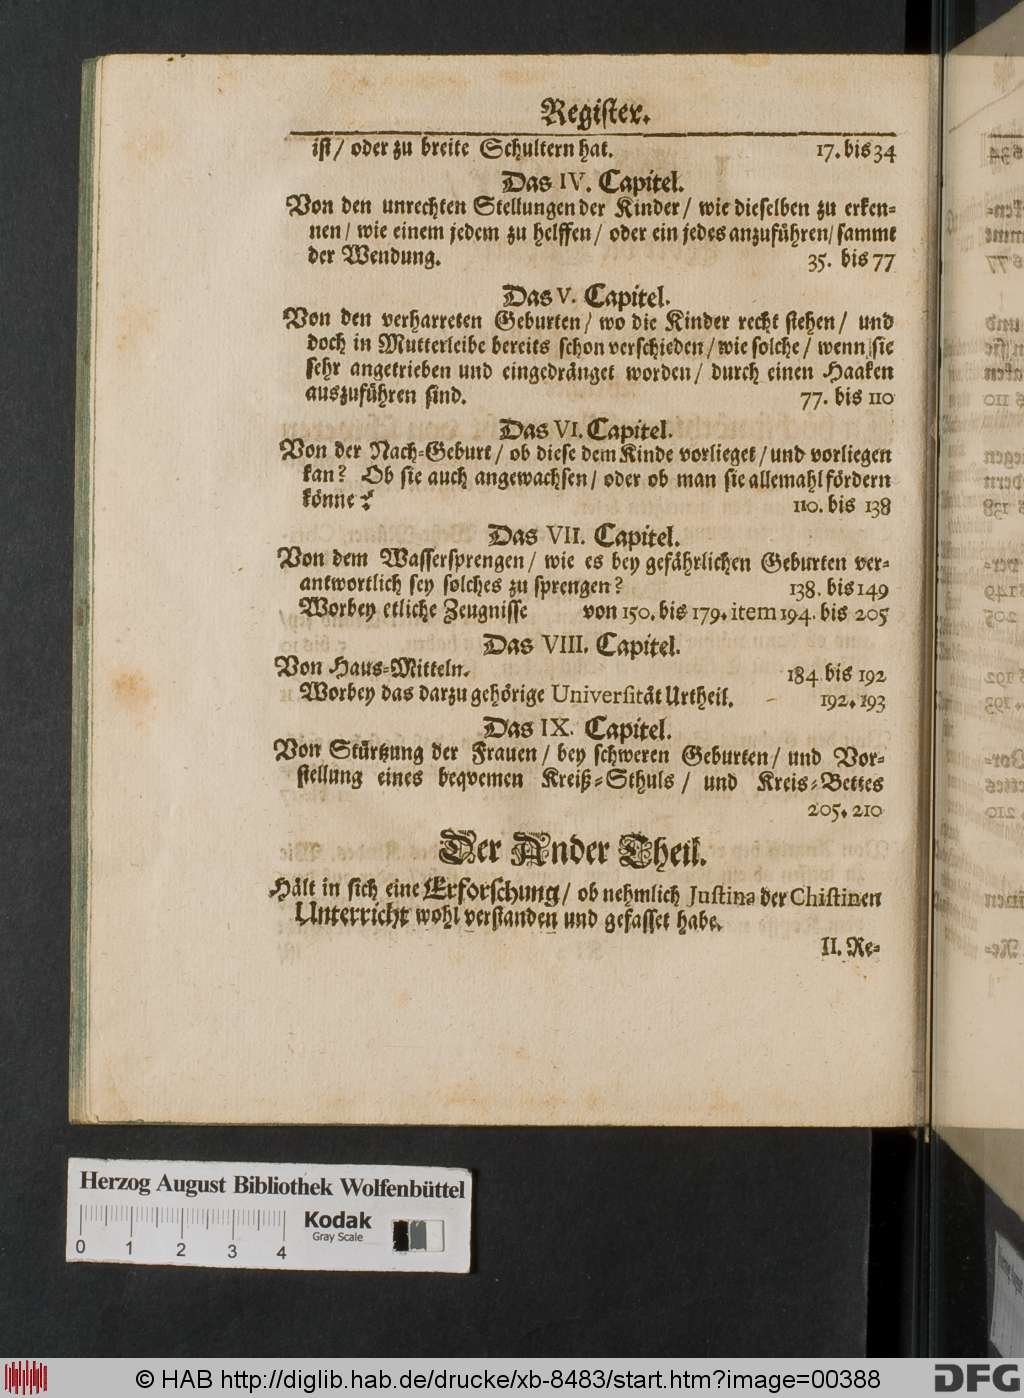 Register.
ist / oder zu breite Schultern hat. 17. bis 34
Das IV. Capitel.
Von den unrechten Stellungen der Kinder / wie dieselben zu erken-
nen / wie einem jedem zu helffen / oder ein jedes anzuführen / sammt
der Wendung. 35. bis 77
Das V. Capitel.
Von den verharreten Geburten / wo die Kinder recht stehen / und
doch in Mutterleibe bereits schon verschieden / wie solche / wenn sie
sehr angetrieben und eingedränget worden / durch einen Haaken
auszuführen sind. 77. bis 110
Das VI. Capitel.
Von der Nach-Geburt / ob diese dem Kinde vorlieget / und vorliegen
kan? Ob sie auch angewachsen / oder ob man sie allemahl fördern
könne? 110. bis 138
Das VII. Capitel.
Von dem Wassersprengen / wie es bey gefährlichen Geburten ver-
antwortlich sey solches zu sprengen? 138. bis 149
Worbey etliche Zeugnisse von 150. bis 179. item 194. bis 205
Das VIII. Capitel.
Von Haus-Mitteln. 184 bis 192
Worbey das darzu gehörige Universität Urtheil. 192. 193
Das IX. Capitel.
Von Stürtzung der Frauen / bey schweren Geburten / und Vor-
stellung eines beqvemen Kreiß-Sthuls / und Kreis-Bettes
205. 210
Der Ander Theil.
Hält in sich eine Erforschung / ob nehmlich Justina der Chistinen
Unterricht wohl verstanden und gefasset habe.
II. Re-
Herzog August Bibliothek Wolfenbüttel
Kodak
Gray Scale
0 1 2 3 4
© HAB http://diglib.hab.de/drucke/xb-8483/start.htm?image=00388
DFG